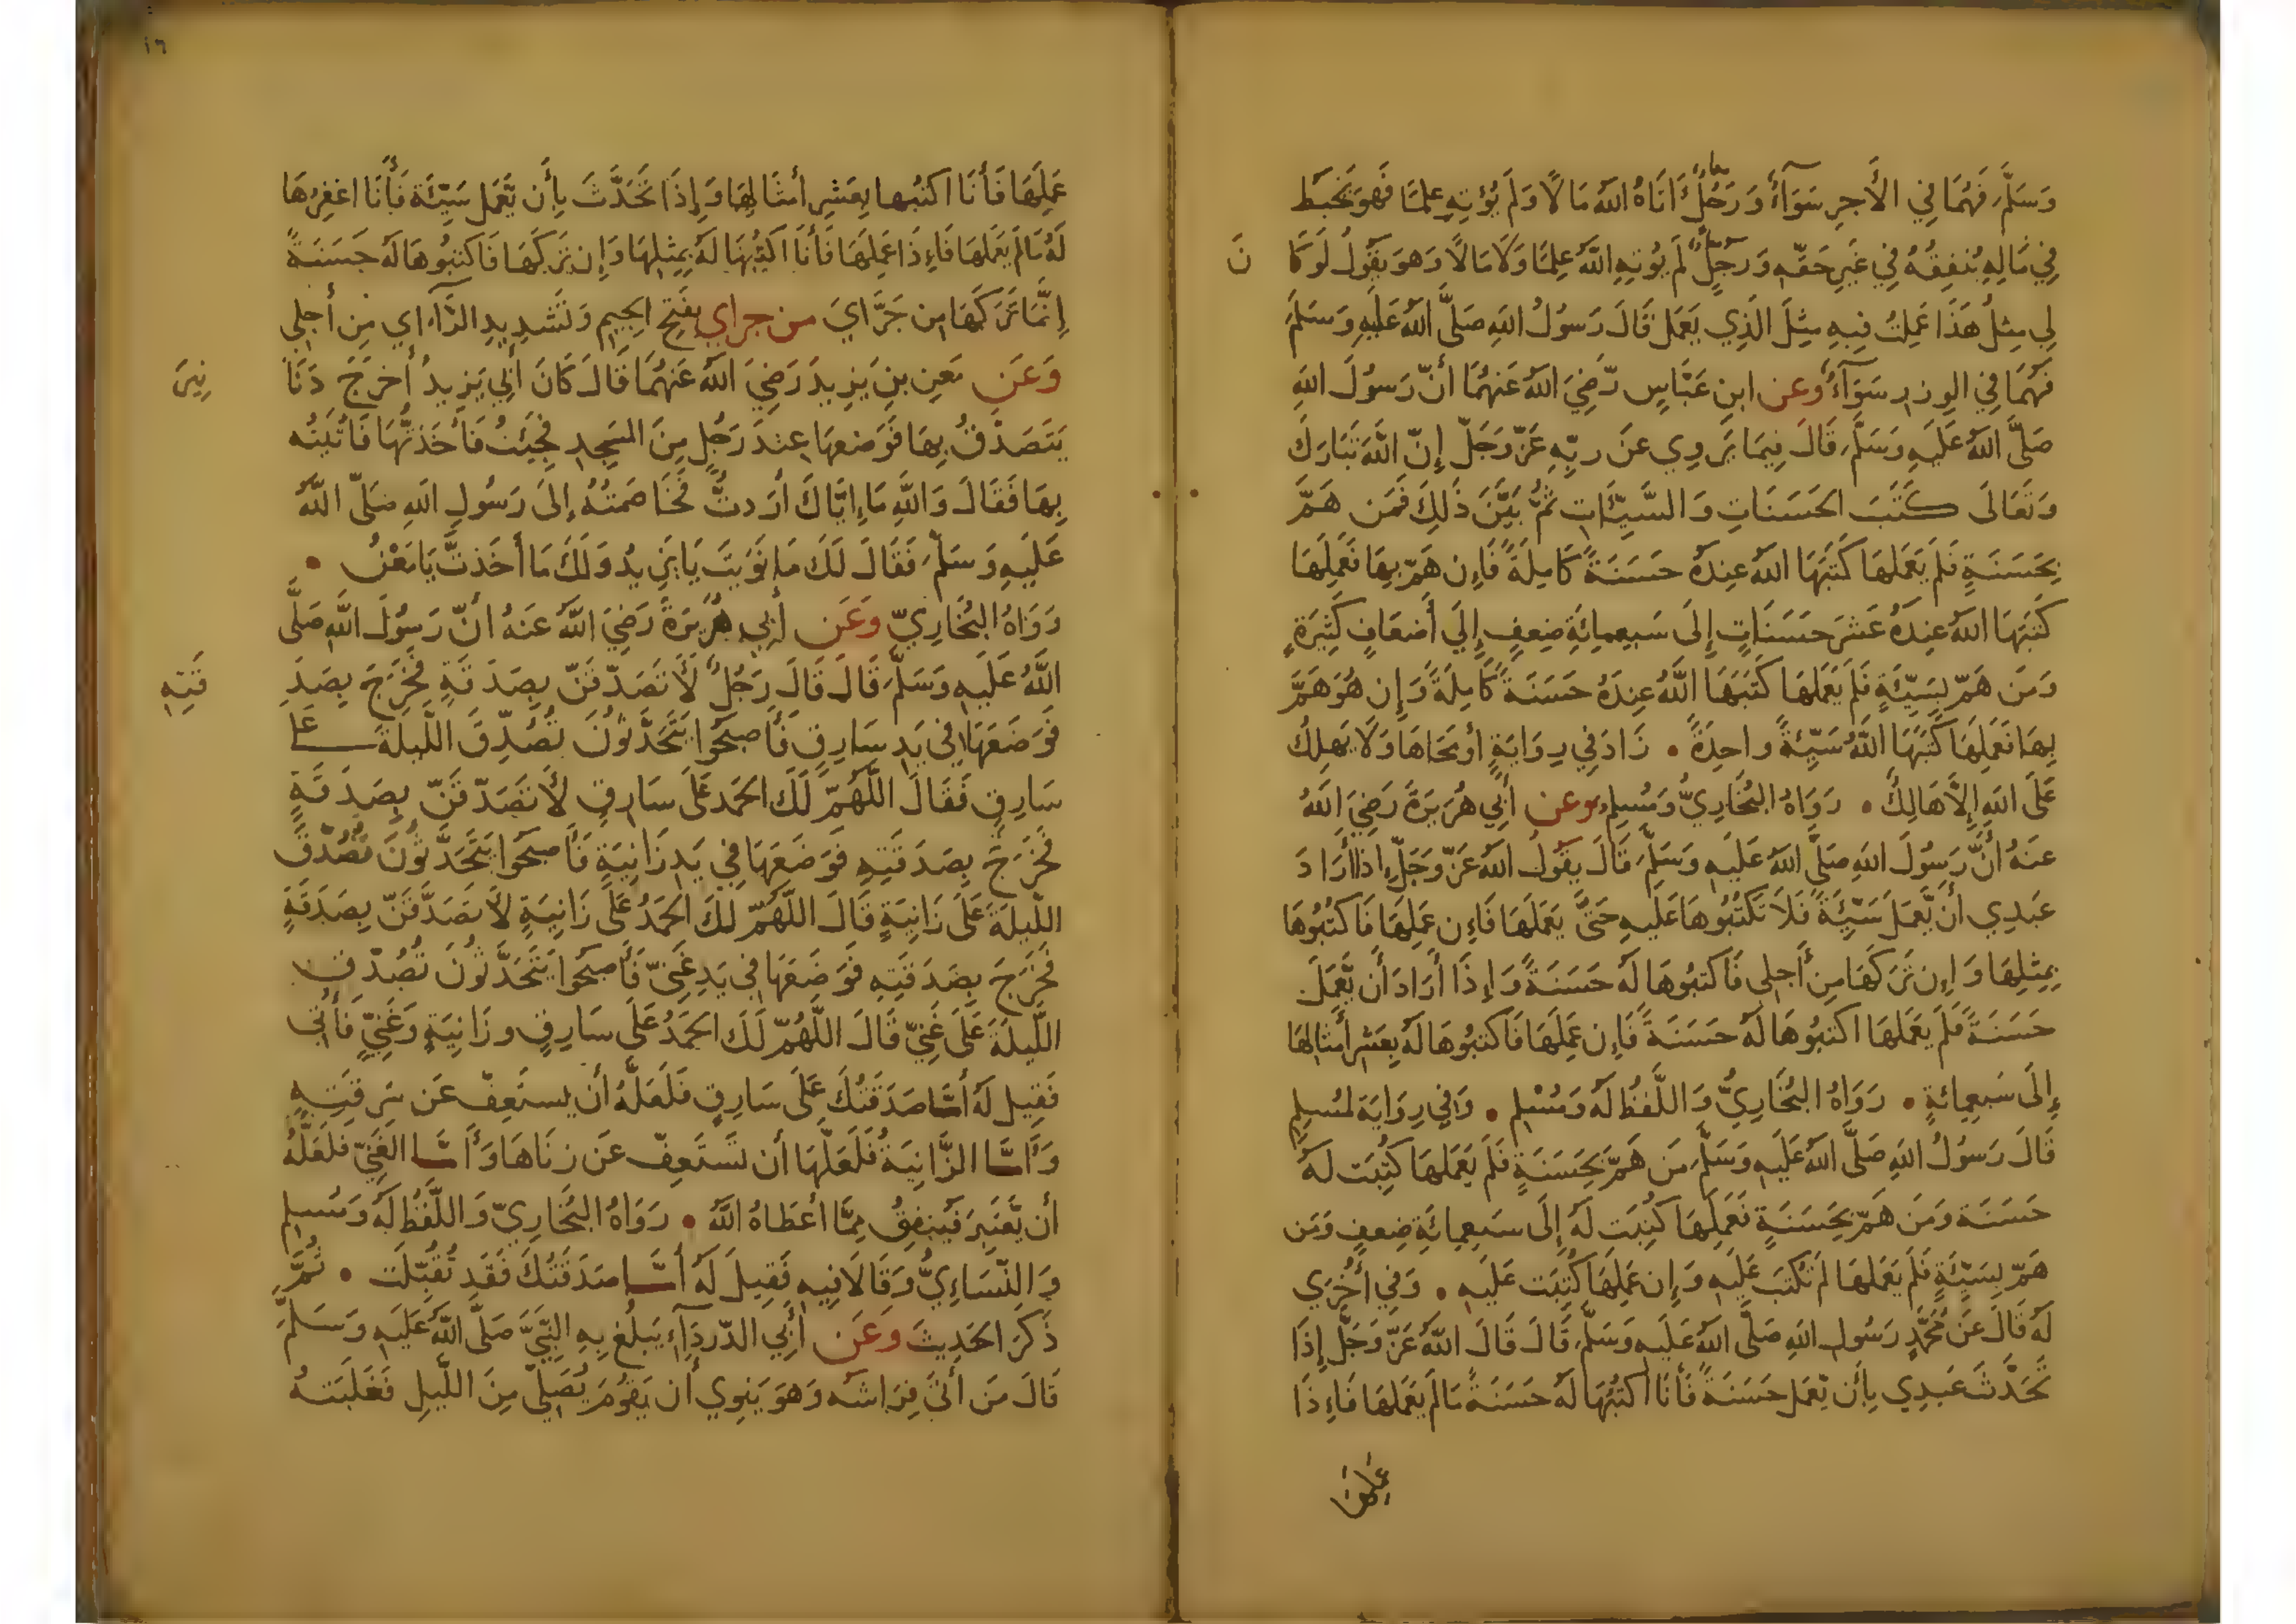 وَسَلَّمَ فَهُمَا فِي الأَجرِ سَوَآءٌ وَرَجُلٌ اٰتَاهُ اللهُ مَالاً وَلَم يُؤتِهِ عِلمًا فَهوَ يَخبَط
فِي مَالِهِ يُنفِقُهُ فِي غَيرِ حَقِّهِ وَرَجُلٍ لَم يُوتِهِ اللهُ عِلمًا وَلَا مَالاً وَهوَ يَقُولُ لَو كَا نَ
لِي مِثلُ هَذَا عَمِلتُ فِيهِ مِثلَ الَّذِي يَعمَل قَالَ رَسُولُ اللهِ صَلَّى اللهُ عَلَيهِ وَسَلَّمَ
فَهُمَا فِي الوِزرِ سَوَآءٌ وعن ابنِ عَبَّاسٍ رَّضِيَ اللهُ عَنهُمَا أنَّ رَسُولَ اللهِ
صَلَّى اللهُ عَلَيهِ وَسَلَّمَ قَالَ فِيمَا يَروِي عَن رَبِّهِ عَزَّ وَجَلَّ إِنَّ اللَّهَ تَبَارَكَ
وَتَعَالَى كَتَبَ الحَسَنَاتِ وَالسَّيِّئَاتِ ثُمَّ بَيَّنَ ذَلِكَ فَمَن هَمَّ
بِحَسَنَةٍ فَلَم يَعمَلهَا كَتَبَهَا اللهُ عِندَهُ حَسَنَةً كَامِلَةً فَإِن هَمَّ بِهَا فَعَمِلَهَا
كَتَبَهَا اللهُ عِندَهُ عَشرَ حَسَنَاتٍ إِلَى سَبعِمِائَةِ ضِعفٍ إِلَى أَضعَافٍ كَثِيرَةٍ
وَمَن هَمَّ بِسَيِّئَةٍ فَلَم يَعمَلهَا كَتَبَهَا اللَّهُ عِندَهُ حَسَنَةً كَامِلَةً وَإِن هُوَ هَمَّ
بِهَا فَعَمِلَهَا كَتَبَهَا اللَّهُ سَيِّئَةً واحِدَةً • زَادَ فِي رِوَايَةٍ أو مَحَاهَا وَلَا يَهلِكُ
عَلَى اللهِ إِلاَّ هَالِكٌ • رَوَاهُ البُخَارِيُّ وَمُسلِم وعن أَبِي هُرَيرَةَ رَضِيَ اللهُ
عَنهُ أَنَّ رَسُولَ اللهِ صَلَّى اللهُ عَلَيهِ وَسَلَّمَ قَالَ يقُولُ اللهُ عَزَّ وَجَلَّ إِذا أَرَادَ
عَبدِي أَن يَّعمَلَ سَيِّئَةً فَلاَ تَكتُبُوهَا عَلَيهِ حَتَّى يَعمَلَهَا فَإِن عَمِلَهَا فَاكتُبُوهَا
بِمِثلِهَا وَإِن تَرَكَهَا مِن أَجلِي فَاكتبُوهَا لَهُ حَسَنَةً وَإِذَا أَرَادَ أَن يَّعمَلَ
حَسَنَةً فَلَم يَعمَلهَا اكتبُوهَا لَهُ حَسَنَةً فَإِن عَمِلَهَا فَاكتبُوهَا لَهُ بِعَشرِ أَمثَالِهَا
إِلَى سَبعِمِائَةٍ • رَوَاهُ البُخَارِيُّ وَاللَّفظُ لَهُ وَمُسْلِم • وَفِي رِوَايَة لمُسلِمٍ
قَالَ رَسُولُ اللهِ صَلَّى اللهُ عَلَيهِ وَسَلَّمَ مَن هَمَّ بِحَسَنَةٍ فَلَم يَعمَلهَا كُتِبَت لَهُ
حَسَنَة وَمَن هَمَّ بِحَسَنَةٍ فَعَمِلَهَا كُتِبَت لَهُ إِلَى سَبعِمِائَةِ ضِعفٍ وَمَن
هَمَّ بِسَيِّئَةٍ فَلَم يَعمَلهَا لَم تُكتَب عَلَيهِ وَإِن عَمِلَهَا كُتِبَت عَلَيهِ • وَفِي أُخرَي
لَه قَالَ عَن مُحَمَّدٍ رَسُولِ اللهِ صَلَّى اللهُ عَلَيهِ وَسَلَّمَ قَالَ قَالَ اللهُ عَزَّ وَجَلَّ إِذَا
تَحَدَّثَ عَبدِي بِأَن يَّعمَل حَسَنَةً فَأَنَا اكتُبُهَا لَهُ حَسَنَةً مَا لَم يَعمَلهَا فَإِذَا
عَمِلَهَا
١٦
عَمِلَهَا فَأَنَا اكتُبُهَا بِعَشرِ أمثَالِهَا وَإِذَا تَحَدَّثَ بِأَن يَّعمَل سَيِّئَةً فَأَنَا اغفِرُهَا
لَهُ مَا لَم يَعمَلهَا فَإِذَا عَمِلَهَا فَأَنَا اكتُبُهَا لَهُ بِمِثلِهَا وَإِن تَرَكَهَا فَاكتبُوهَا لَهُ حَسَنَةً
إِنَّمَا تَرَكَهَا مِن جَرَّايَ من جراي بِفَتحِ الجِيمِ وَتَشدِيدِ الرَّآءِ اي مِن أَجلِي
وَعَن مَعنِ بنِ يَزِيدَ رَضِيَ اللهُ عَنهُمَا قَالَ كَانَ أَبِي يَزِيدُ أَخرَجَ دَنَا نِيرَ
يَتَصَدَّقُ بِهَا فَوَضَعهَا عِندَ رَجُلٍ مِنَ المَسجِدِ فَجِئتُ فَأَخَذتُهَا فَأَتَيتُه
بِهَا فَقَالَ وَاللَّهِ مَا إِيَّاكَ أَرَدتُّ فَخَاصَمتُهُ إِلَى رَسُولِ اللهِ صَلَّى اللَّهُ
عَلَيهِ وَسَلَّمَ فَقَالَ لَكَ مَا نَوَيتَ يَا يَزِيدُ وَلَكَ مَا أَخَذتَّ يَا مَعْنُ •
رَوَاهُ البُخَارِيّ وَعَن أَبِي هُرَيرَةَ رَضِيَ اللَّهُ عَنهُ أَنَّ رَسُولَ اللَّهِ صَلَّى
اللَّهُ عَلَيهِ وَسَلَّمَ قَالَ قَالَ رَجُلٌ لَأَتَصَدَّقَنَّ بِصَدَقَةٍ فَخَرَجَ بِصَدَ قَتِهِ
فَوَضَعَهَا فِي يَدِ سَارِقٍ فَأَصبَحُوا يَتَحَدَّثُونَ تُصُدِّقَ اللَّيلَةَ عَلَى
سَارِقٍ فَقَالَ اللَّهُمَّ لَكَ الحَمدُ عَلَى سَارِقٍ لَأَتَصَدَّقَنَّ بِصَدَقَةٍ
فَخَرَجَ بِصَدَقَتِهِ فَوَضَعَهَا فِي يَدِ زَانِيَةٍ فَأَصبَحُوا يَتَحَدَّثُونَ تُصُدِّقَ
اللَّيلَةَ عَلَى زَانِيَةٍ قَالَ اللَّهُمَّ لَكَ الحَمدُ عَلَى زَانِيَةٍ لَأَتَصَدَّقَنَّ بِصَدَقَةٍ
فَخَرَجَ بِصَدَقَتِهِ فَوَضَعَهَا فِي يَدِ غَنِيٍّ فَأَصبَحُوا يَتَحَدَّثُونَ تُصُدِّقَ
اللَّيلَةَ عَلَى غَنِيٍّ قَالَ اللَّهُمَّ لَكَ الحَمدُ عَلَى سَارِقٍ وزَانِيَةٍ وَغَنِيٍّ فَأُتِيَ
فَقِيلَ لَهُ أَمَّا صَدَقَتُكَ عَلَى سَارِقٍ فَلَعَلَّهُ أَن يستَعِفَّ عَن سَرِقَتِهِ
وَأَمَّا الزَّانِيَةُ فَلَعَلَّهَا أَن تَستَعِفَّ عَن زِنَاهَا وَأَمَّا الغَنِيّ فَلَعَلَّهُ
أَن يَّعتَبِرَ فَيُنفِقُ مِمَّا أَعطَاهُ اللهُ • رَوَاهُ البُخَارِيّ وَاللَّفظُ لَهُ وَمُسلِم
وَالنَّسَاءِيُّ وَقَالَا فِيهِ فَقِيلَ لَهُ أَمَّا صَدَقَتُكَ فَقَد تُقُبِّلَت • ثُمَّ
ذَكَرَ الحَدِيثَ وَعَن أَبِي الدَّردَآءِ يَبلُغ بِهِ النَّبِيَّ صَلَّى اللهُ عَلَيهِ وَسَلَّمَ
قَالَ مَن أَتَى فِرَاشَه وَهوَ يَنوِي أَن يَقُومَ يُصَلِّيَ مِنَ اللَّيلِ فَغَلَبَتهُ